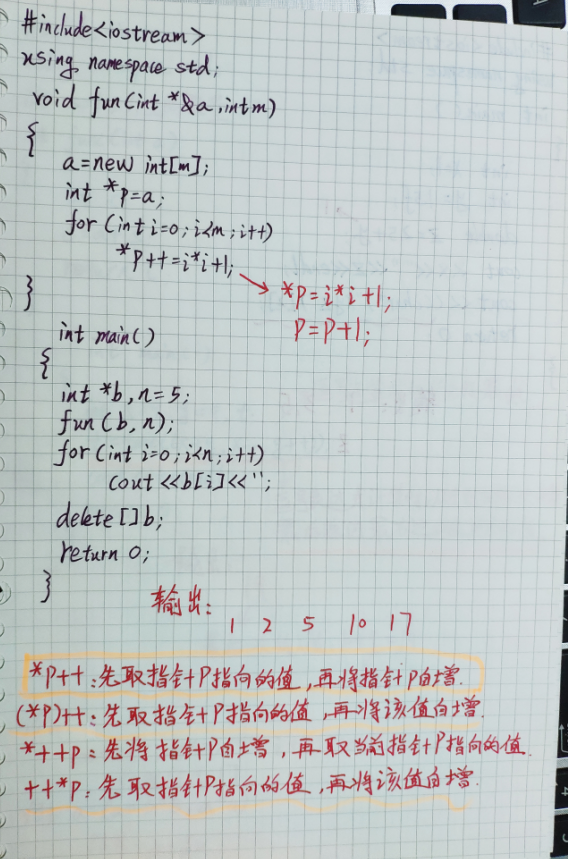 #include<iostream>
using namespace std;
void fun(int *&a,int m)
{
a=new int[m];
int *p=a;
for(int i=0;i<m;i++)
*p++=i*i+1;
*p=i*i+1;
}
p=p+1;
int main()
{
int *b,n=5;
fun(b,n);
for(int i=0;i<n;i++)
cout<<b[i]<<'';
delete[]b;
return 0;
}
输出:
1 2 5 10 17
*p++:先取指针P指向的值,再将指针p自增.
(*p)++:先取指针P指向的值,再将该值自增.
*++p:先将指针P自增,再取当前指针P指向的值.
++*p:先取指针P指向的值,再将该值自增.